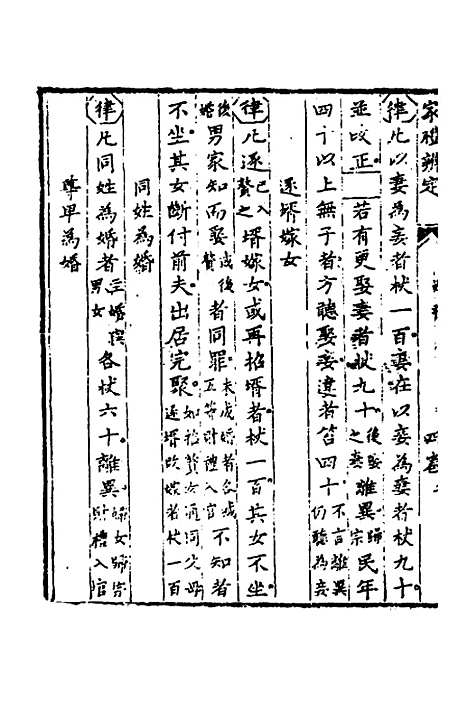 家禮辨定
律凡以妻為妾者杖一百妻在以妾為妻者杖九十
並改正若有更娶妻者杖九十後娶之妻離異歸宗民年
四十以上無子者方聽娶妾違者笞四十不言離異仍聽為妾
逐壻嫁女
律凡逐已入贅之壻嫁女或再招壻者杖一百其女不坐
後婚男家知而娶或後贅者同罪未成婚者各減五等財禮入官不知者
不坐其女斷付前夫出居完聚如招贅女通同父母逐壻改嫁者杖一百
同姓為婚
律凡同姓為婚者主婚男女各杖六十離異婦女歸宗財禮入官
尊卑為婚